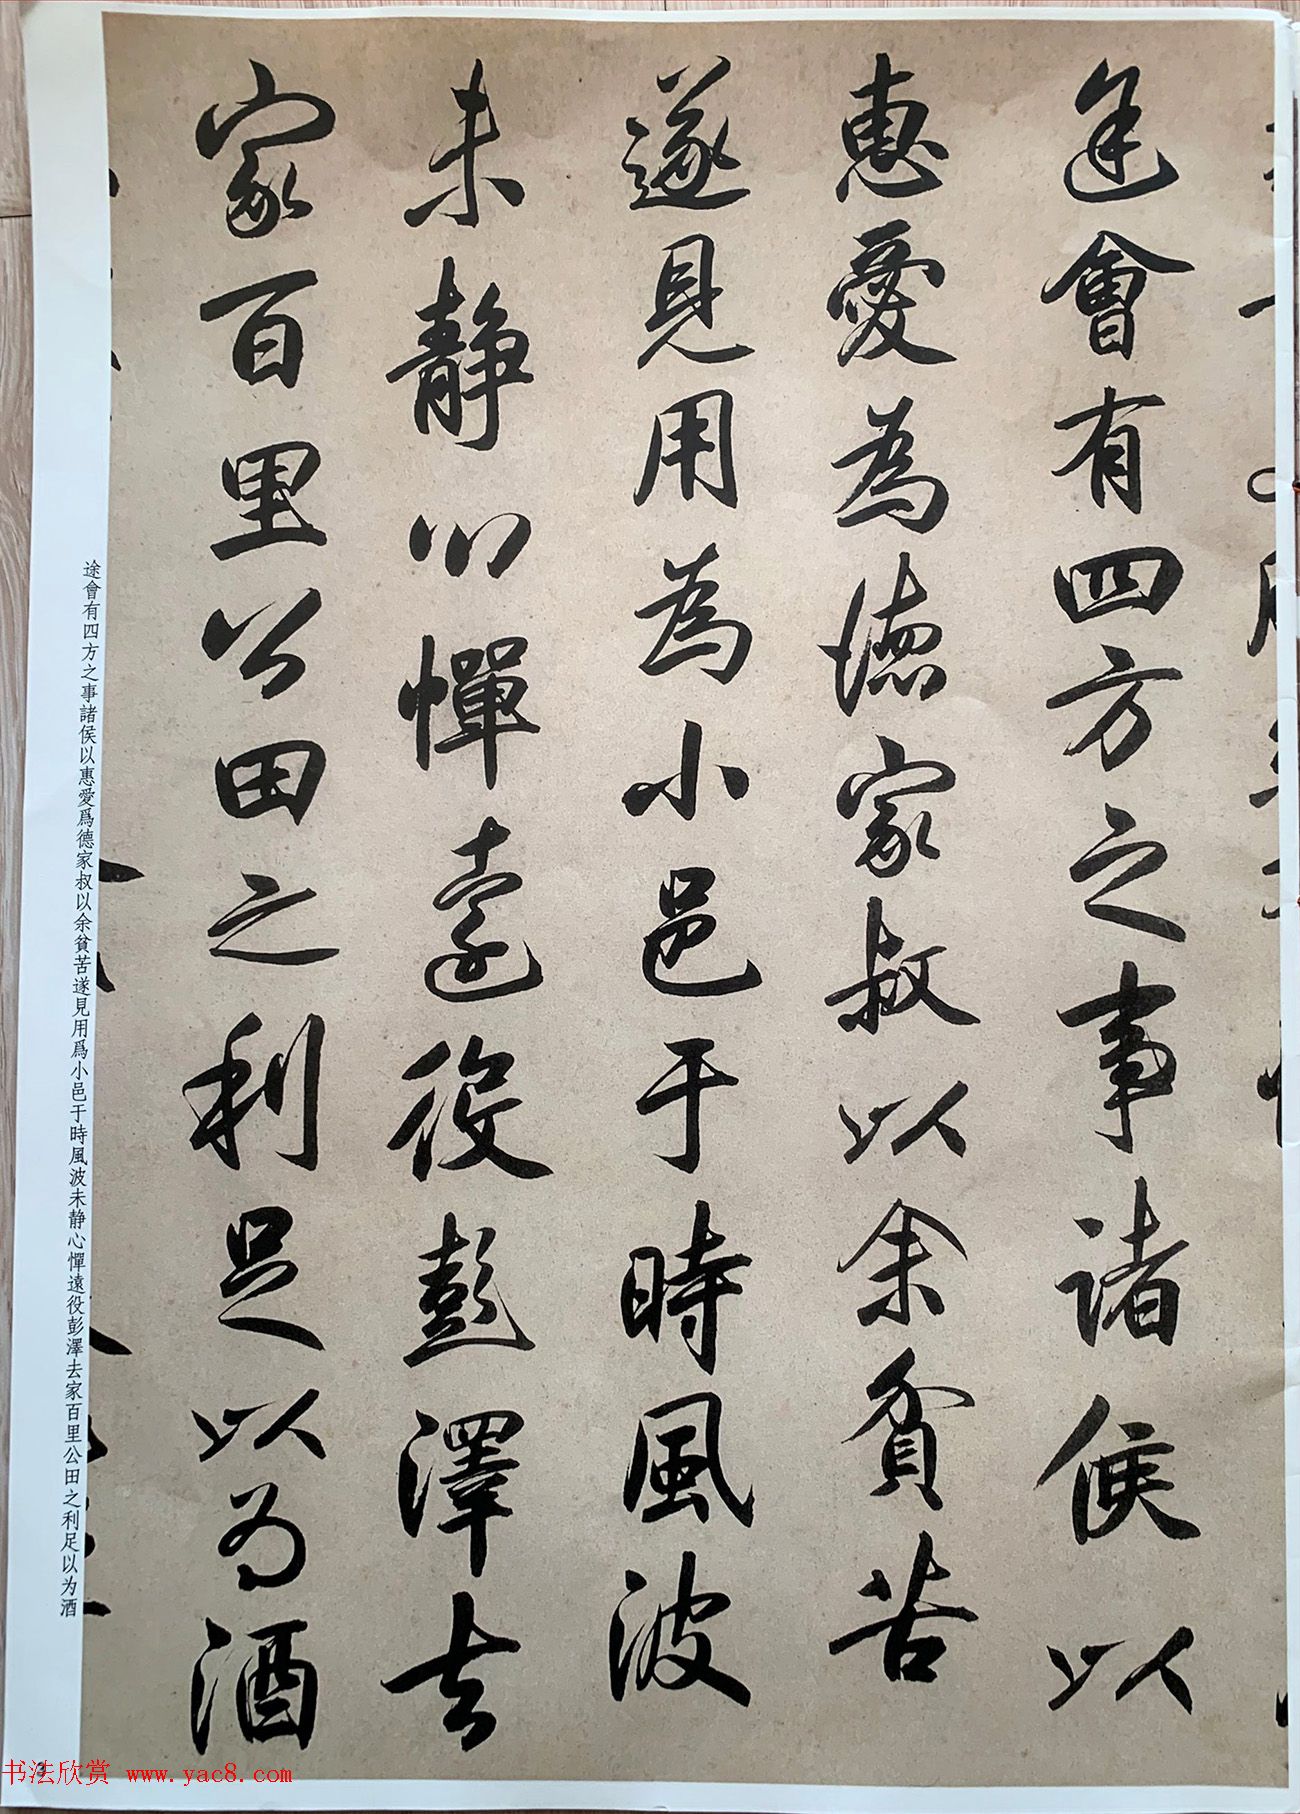 途會有四方之事諸侯以
惠愛為德家叔以余貧苦
遂見用為小邑于時風波
未静心憚遠役彭澤去
家百里公田之利足以为酒
途會有四方之事諸侯以惠愛爲德家叔以余貧苦遂見用爲小邑于時風波未静心憚遠役彭澤去家百里公田之利足以为酒
3
书法欣赏 www.yac8.com